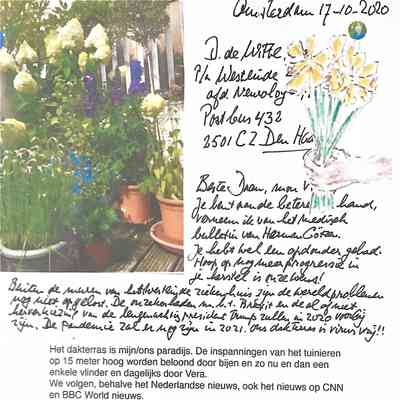 Amsterdam 17-10-2020
D. de Witte
P/a Westeinde
afd Neurolog
Postbus 432
2501 CZ Den Haa
Beste Daan, mon v
Je bent aan de betere hand,
verneem ik van het medisch
bulletin van Herman Gösen.
Je hebt wel een opdonder gehad.
Hoop op nog meer progressie in
je herstel is onze wens!
Buiten de muren van het Westeinde ziekenhuis zijn de wereldproblemen
nog niet opgelost. De onzekerheden m.b.t. Brexit en de al of niet
herverkiezing van de leugenachtig president Trump zullen in 2020 voorbij
zijn. De Pandemie zal er nog zijn in 2021. Ons dakterras is virus vrij!!
Het dakterras is mijn/ons paradijs. De inspanningen van het tuinieren
op 15 meter hoog worden beloond door bijen en zo nu en dan een
enkele vlinder en dagelijks door Vera.
We volgen, behalve het Nederlandse nieuws, ook het nieuws op CNN
en BBC World nieuws.